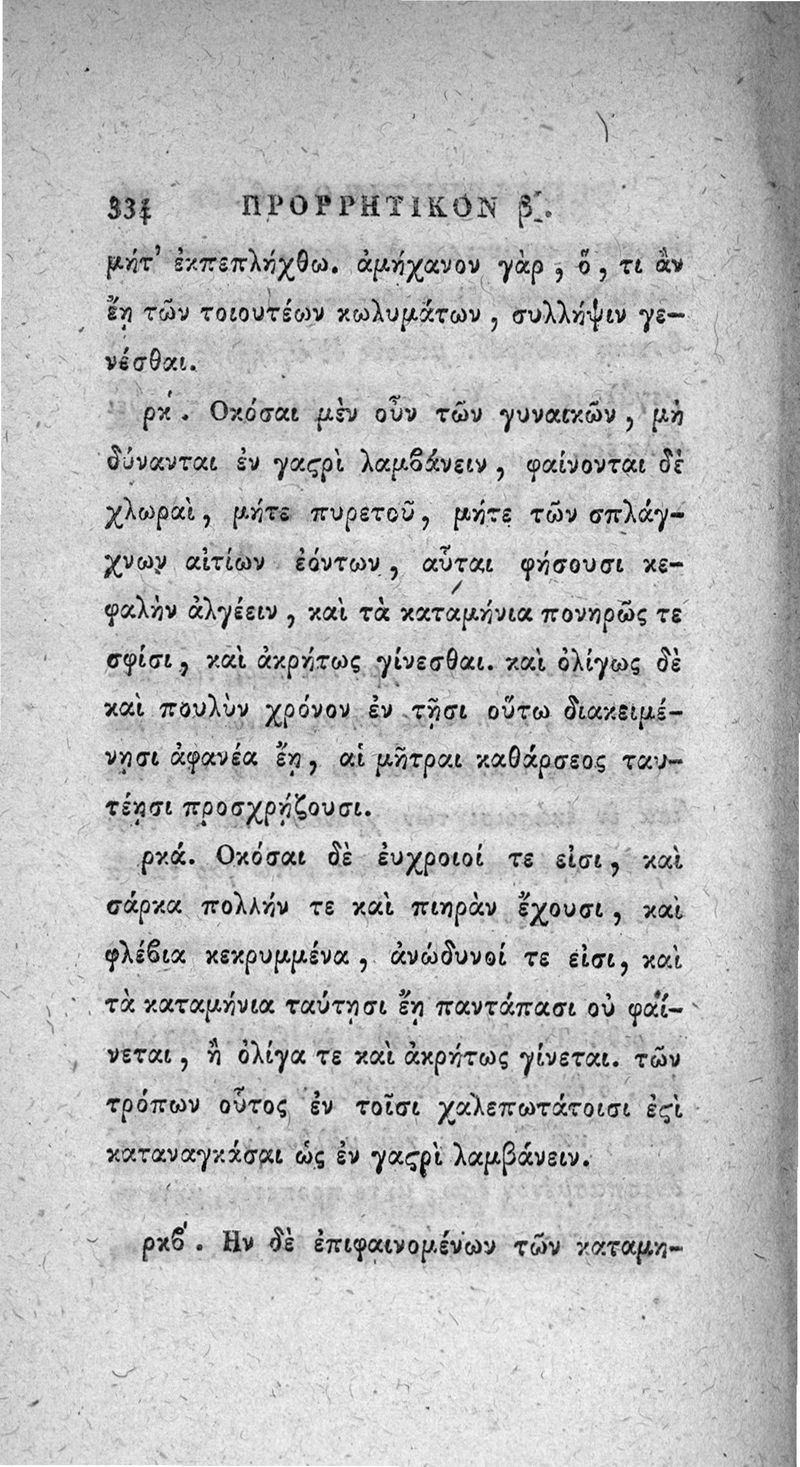 334 ΠΡΟΡΡΗΤΙΚΟΝ β΄.
μήτ' ἐκπεπλήχθω. ἀμήχανον γὰρ, ὅ, τι ἂν
ἔῃ τῶν τοιουτέων κωλυμάτων, συλλήψιν γε-
νέσθαι.
ρκ΄. Οκόσαι μὲν οὖν τῶν γυναικῶν, μὴ
δύνανται ἐν γαϛρὶ λαμβάνειν, φαίνονται δὲ
χλωραὶ, μήτε πυρετοῦ, μήτε τῶν σπλάγ-
χνων αἰτίων ἐόντων, αὗται φήσουσι κε-
φαλὴν ἀλγέειν, καὶ τὰ καταμήνια πονηρῶς τε
σφίσι, καὶ ἀκρήτως γίνεσθαι. καὶ ὀλίγως δὲ
καὶ πουλὺν χρόνον ἐν τῇσι οὕτω διακειμέ-
νῃσι ἀφανέα ἔῃ, αἱ μῆτραι καθάρσεος ταυ-
τέῃσι προσχρῄζουσι.
ρκά. Οκόσαι δὲ ἐυχροιοί τε εἰσι, καὶ
σάρκα πολλήν τε καὶ πιηρὰν ἔχουσι, καὶ
φλέβια κεκρυμμένα, ἀνώδυνοί τε εἰσι, καὶ
τὰ καταμήνια ταύτῃσι ἔῃ παντάπασι οὐ φαί-
νεται, ἢ ὀλίγα τε καὶ ἀκρήτως γίνεται. τῶν
τρόπων οὗτος ἐν τοῖσι χαλεπωτάτοισι ἐϛὶ
καταναγκάσαι ὡς ἐν γαϛρὶ λαμβάνειν.
ρκβ΄. Ην δὲ ἐπιφαινομένων τῶν καταμη-